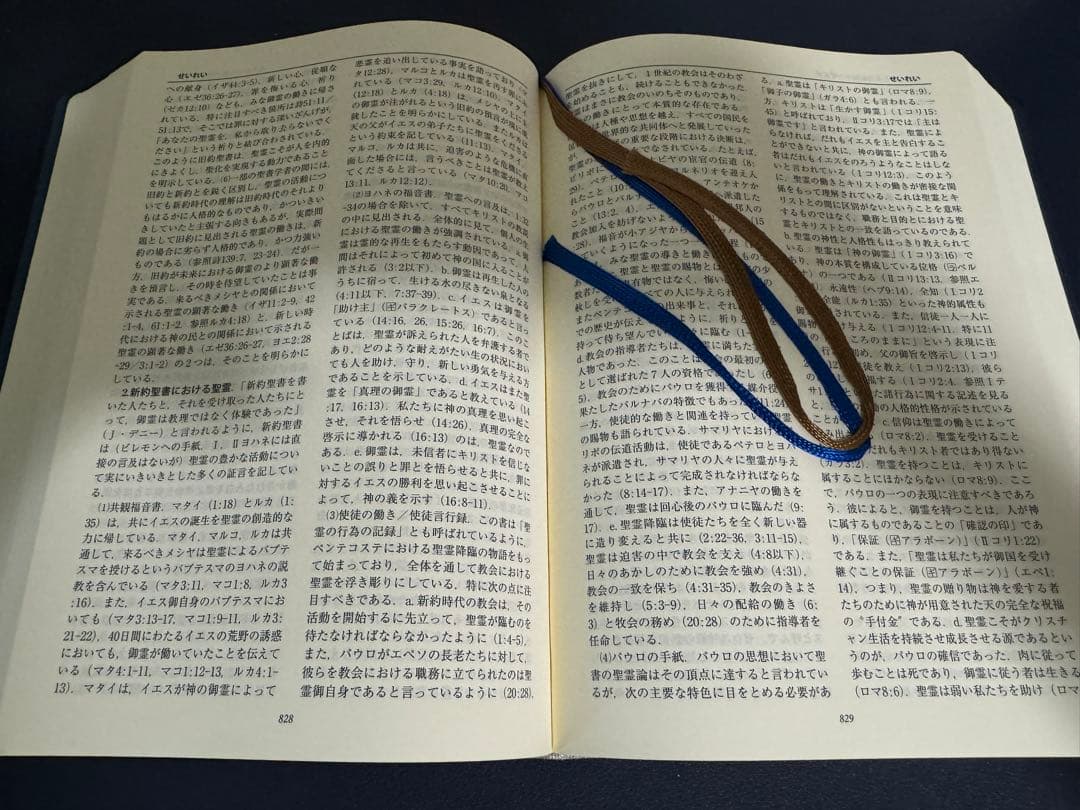 せいれい
への献身(イザ44:3-5),新しい心,従順な
心(エゼ36:26-27),罪を悔いる心,祈り
(ゼカ12:10)なども,みな御霊の働きに帰さ
れている.特に注目すべき箇所は詩51:11/
51:13で,そこでは罪に対する深いざんげが,
「あなたの聖霊を,私から取り去らないでく
ださい」という祈りと結び合わされている.
このように旧約聖書は,聖霊こそが人を内的
にきよくし,聖化を実現する動力であること
を明示している.(6)一部の聖書学者の間には,
旧約と新約とを鋭く区別し,聖霊の活動につ
いても新約時代の理解は旧約時代のそれより
もはるかに人格的なものであり,かついきい
きしていたと主張する向きもあるが,実際問
題として旧約に見出される聖霊の働きは,新
約の場合に劣らず人格的であり,かつ力強い
ものである(参照詩139:7,23-24).だが一
方,旧約が未来における御霊のより顕著な働
きを預言し,その時を待望していたことは事
実である.来るべきメシヤとの関係において
示される聖霊の顕著な働き(イザ11:2-9,42
:1-4,61:1-2.参照ルカ4:18)と,新しい時
代における神の民との関係において示される
聖霊の顕著な働き(エゼ36:26-27,ヨエ2:28
-29/3:1-2)の2つは,そのことを明らかに
している.
2.新約聖書における聖霊.「新約聖書を書
いた人たちと,それを受け取った人たちにと
って,御霊は教理ではなく体験であった」
(J・デニー)と言われるように,新約聖書
は(ピレモンへの手紙,Ⅰ,Ⅱヨハネには直
接の言及はないが)聖霊の豊かな活動につい
て実にいきいきとした多くの証言を記してい
る.
(1)共観福音書.マタイ(1:18)とルカ(1:
35)は,共にイエスの誕生を聖霊の創造的な
力に帰している.マタイ,マルコ,ルカは共
通して,来るべきメシヤは聖霊によるバプテ
スマを授けるというバプテスマのヨハネの説
教を含んでいる(マタ3:11,マコ1:8,ルカ3
:16).また,イエス御自身のバプテスマにお
いても(マタ3:13-17,マコ1:9-11,ルカ3:
21-22),40日間にわたるイエスの荒野の誘惑
においても,御霊が働いていたことを伝えて
いる(マタ4:1-11,マコ1:12-13,ルカ4:1-
13).マタイは,イエスが神の御霊によって
悪霊を追い出している事実を語っており
タ12:28),マルコとルカは聖霊を
(マコ3:29,ルカ12:10).マタイ
(12:18)とルカ(4:18)は,メシヤの上に
の御霊が注がれるという旧約の預言が
就したことを明らかにしている.またルカは,
天の父がイエスの弟子たちに聖霊をくださる
という約束を記している(11:13).マタイ,
マルコ,ルカは共に,迫害のような危機に直
面した場合には,言うべきことは聖霊が教え
てくださると言っている(マタ10:20,マコ
13:11,ルカ12:12).
(2)ヨハネの福音書.聖霊への言及は,1:32
-34の場合を除いて,すべてキリストの教え
の中に見出される.全体的に見て,個人の生
における聖霊の働きが強調されている.a.御
霊は霊的な再生をもたらす動因であって,人
間はそれによって初めて神の国に入ることが
許される(3:2以下).b.御霊は再生した人の
うちに宿って,生ける水の尽きない泉となる
(4:11以下,7:37-39).c.イエスは御霊を
「助け主」(ギパラクレートス)であると言って
いる(14:16,26,15:26,16:7).このこ
とばは,聖霊が訴えられた人を弁護する者で
あり,どのような耐えがたい生の状況におい
ても人を助け,守り,新しい勇気を与える方
であることを示している.d.イエスはまた聖
霊を「真理の御霊」であると教えている(14
:17,16:13).私たちに神の真理を思い起こ
させ,それを悟らせ(14:26),真理の完全な
啓示に導かれる(16:13)のは,聖霊なので
ある.e.御霊は,未信者にキリストを信じな
いことの誤りと罪とを悟らせると共に,罪に
対するイエスの勝利を思い起こさせることに
よって,神の義を示す(16:8-11).
(3)使徒の働き/使徒言行録.この書は「聖
霊の行為の記録」とも呼ばれているように,
ペンテコステにおける聖霊降臨の物語をもっ
て始まっており,全体を通して教会における
聖霊を浮き彫りにしている.特に次の点に注
目すべきである.a.新約時代の教会は,その
活動を開始するに先立って,聖霊が臨むのを
待たなければならなかったように(1:4-5),
また,パウロがエペソの長老たちに対して,
彼らを教会における職務に立てられたのは聖
霊御自身であると言っているように(20:28),
828
せいれい
聖霊を抜きにして,1世紀の教会はそのわざ
を始めることも,続けることもできなかった.
はまさに教会のいのちそのものであり,
働きにとって本質的な存在である.
は人種や思想を越え,すべての国民を
世界的な共同体へと発展していった
の重要な段階における決断は,
でなされている.たとえば,
ピヤの宦官の伝道(8:
ルネリオを迎え入
アンテオケか
らパウロとバルナバ
派遣した
こと(13:2,4).
邦人の
教会加入を妨げないよう
28).福音が小アジヤから
ていくようになった一つ一
みな聖霊の導きと働き
と聖霊の賜物とは
の少
数者た
有物ではなく,悔い
赦しを受
べての人に与えられ
ペンテコス
の出来事と,それ
での歴史が伝え
ように,祈り
持って待ち望んでい
に臨む(1-
d.教会の指導者たちは,
霊に満ちた
物であった.このことは
会の最初の
として選ばれた7人の資格であったし(6
5),教会のためにパウロを獲得
媒介役
果たしたバルナバの特徴でもあった(11:24
一方,使徒的な働きと関連を持って
聖霊
の賜物も語られている.サマリヤにおけ
リポの伝道活動は,使徒であるペテロとヨハ
ネが派遣され,サマリヤの人々に聖霊が与え
られることによって完成されなければならな
かった(8:14-17).また,アナニヤの働きを
通して,聖霊は回心後のパウロに臨んだ(9:
17).e.聖霊降臨は使徒たちを全く新しい器
に造り変えると共に(2:22-36,3:11-15),
聖霊は迫害の中で教会を支え(4:8以下),
日々のあかしのために教会を強め(4:31),
教会の一致を保ち(4:31-35),教会のきよさ
を維持し(5:3-9),日々の配給の働き(6:
3)と牧会の務め(20:28)のために指導者を
任命している.
(4)パウロの手紙.パウロの思想において聖
書の聖霊論はその頂点に達すると言われてい
るが,次の主要な特色に目をとめる必要があ
る.a.聖霊は「キリストの御霊」(ロマ8:9),
「御子の御霊」(ガラ4:6)とも言われる.一
方,キリストは「生かす御霊」(Ⅰコリ15:
45)と呼ばれており,Ⅱコリ3:17では「主は
御霊です」と言われている.また,聖霊によ
らなければ,だれもイエスを主と告白するこ
とができないと共に,神の御霊によって語る
者はだれもイエスをのろうようなことはしな
いと言われている(Ⅰコリ12:3).このよう
に,聖霊の働きとキリストの働きが密接な関
係をもって理解されている.これは聖霊とキ
リストとの間に区別がないということを意味
するものではなく,職務と目的とにおける聖
霊とキリストとの一致を語っているのである.
b.聖霊の神性と人格性もはっきり教えられて
いる.聖霊は「神の御霊」(Ⅰコリ3:16)で
あり,神の本質を構成している位格(ラペル
)の一つである(Ⅱコリ13:13,参照エ
永遠性(ヘブ9:14),全知(Ⅰコリ2
全能(ルカ1:35)といった神的属性も
れている.また,信徒一人一人に
賜物
与える(Ⅰコリ12:4-11.特に11
ころのままに」という表現に注
神の
め,父の御旨を啓示し(Ⅰコリ
徒を教え(Ⅰコリ2:13),彼ら
に
する(Ⅰコリ2:4.参照Ⅰテ
た諸行為に関する記述を見る
の人格的性格が示されている
み出
c.信仰は聖霊の働きによって
(ロマ8:2),聖霊を受けること
だれもキリスト者ではあり得ない
(ガラ3:2).聖霊を持つことは,キリストに
属することにほかならない(ロマ8:9).ここ
で,パウロの一つの表現に注意すべきであろ
う.彼によると,御霊を持つことは,人が神
に属するものであることの「確認の印」であ
り,「保証(ギアラボーン)」(Ⅱコリ1:22)
である.また,「聖霊は私たちが御国を受け
継ぐことの保証(ギアラボーン)」(エペ1:
14),つまり,聖霊の贈り物は神を愛する者
たちのために神が用意された天の完全な祝福
の“手付金”である.d.聖霊こそがクリスチ
ャン生活を持続させ成長させる源であるとい
うのが,パウロの確信であった.肉に従って
歩むことは死であり,御霊に従う者は生きる
(ロマ8:6).聖霊は弱い私たちを助け(ロマ
829